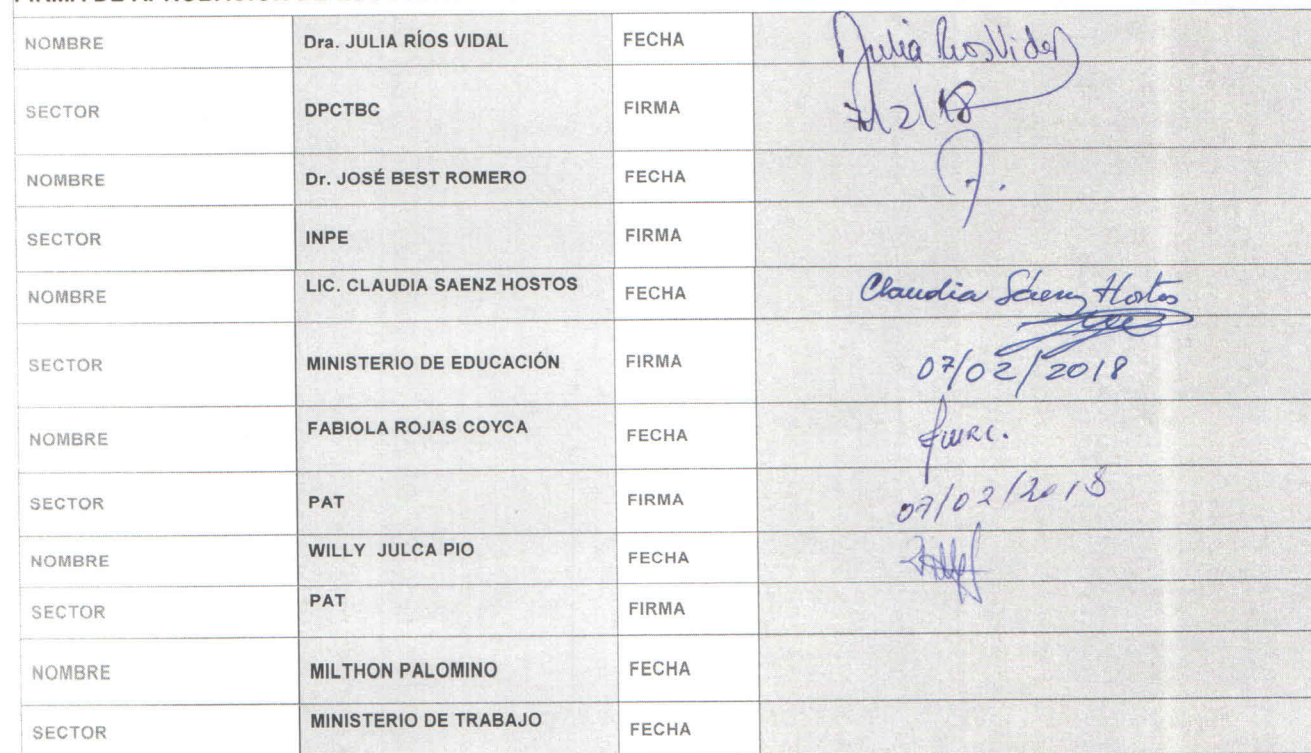 NOMBRE Dra. JULIA RÍOS VIDAL FECHA Julia Ríos Vidal
SECTOR DPCTBC FIRMA 7/2/18
NOMBRE Dr. JOSÉ BEST ROMERO FECHA
SECTOR INPE FIRMA
NOMBRE LIC. CLAUDIA SAENZ HOSTOS FECHA Claudia Sáenz Hostos
SECTOR MINISTERIO DE EDUCACIÓN FIRMA 07/02/2018
NOMBRE FABIOLA ROJAS COYCA FECHA
SECTOR PAT FIRMA 07/02/2018
NOMBRE WILLY JULCA PIO FECHA
SECTOR PAT FIRMA
NOMBRE MILTHON PALOMINO FECHA
SECTOR MINISTERIO DE TRABAJO FECHA